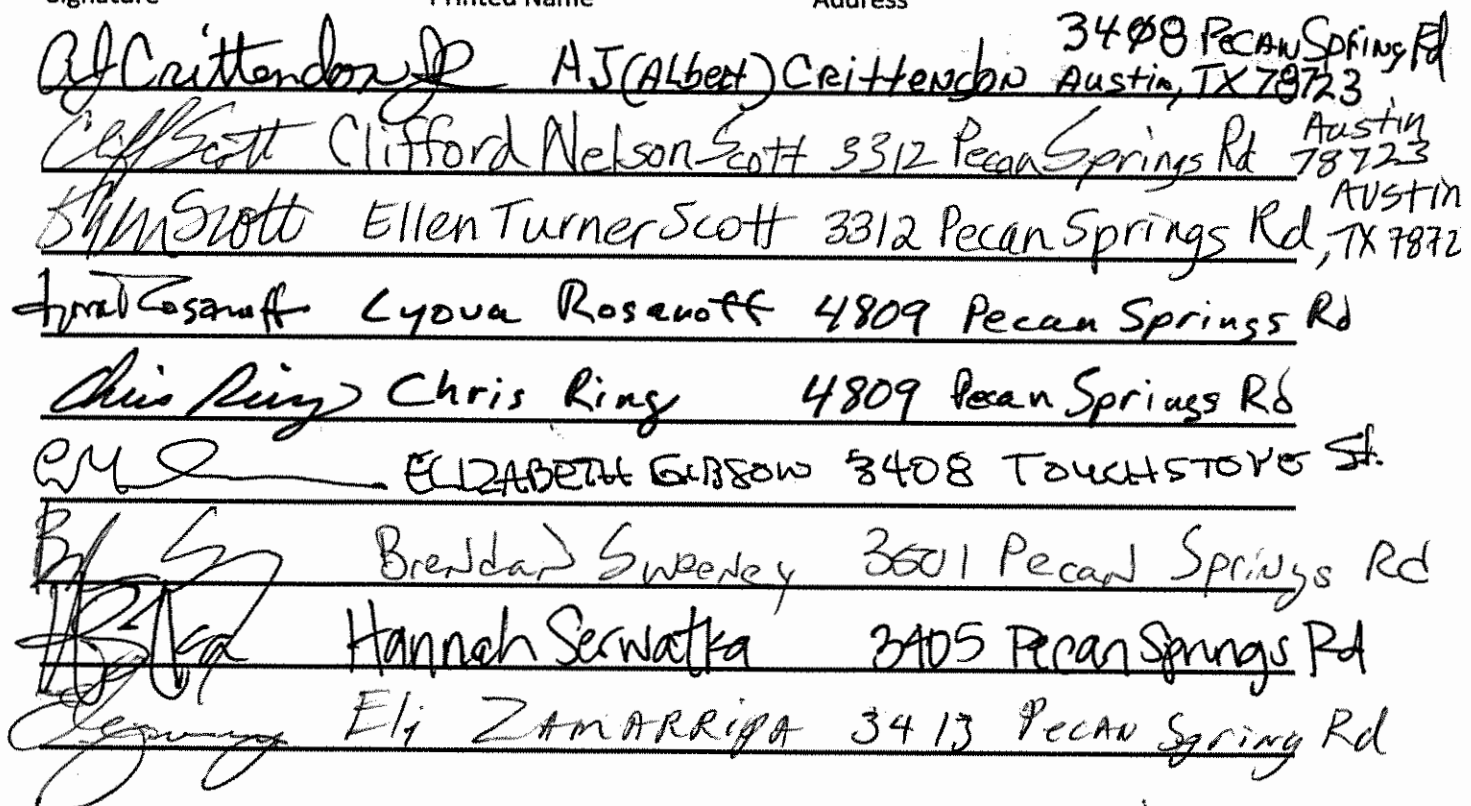 Signature Printed Name Address
AJ Crittendon Jr AJ (Albert) Crittendon 3408 Pecan Spring Rd
Austin, TX 78723
Cliff Scott Clifford Nelson Scott 3312 Pecan Springs Rd Austin
78723
Scott Ellen Turner Scott 3312 Pecan Springs Rd Austin
, TX 7872
Rosanoff Lyova Rosanoff 4809 Pecan Springs Rd
Chris Ring Chris Ring 4809 Pecan Springs Rd
ELIZABETH GIBSON 3408 TOUCHSTONE St.
Brendan Sweeney 3501 Pecan Springs Rd
Hannah Serwatka 3405 Pecan Springs Rd
Eli ZAMARRIPA 3413 Pecan Spring Rd